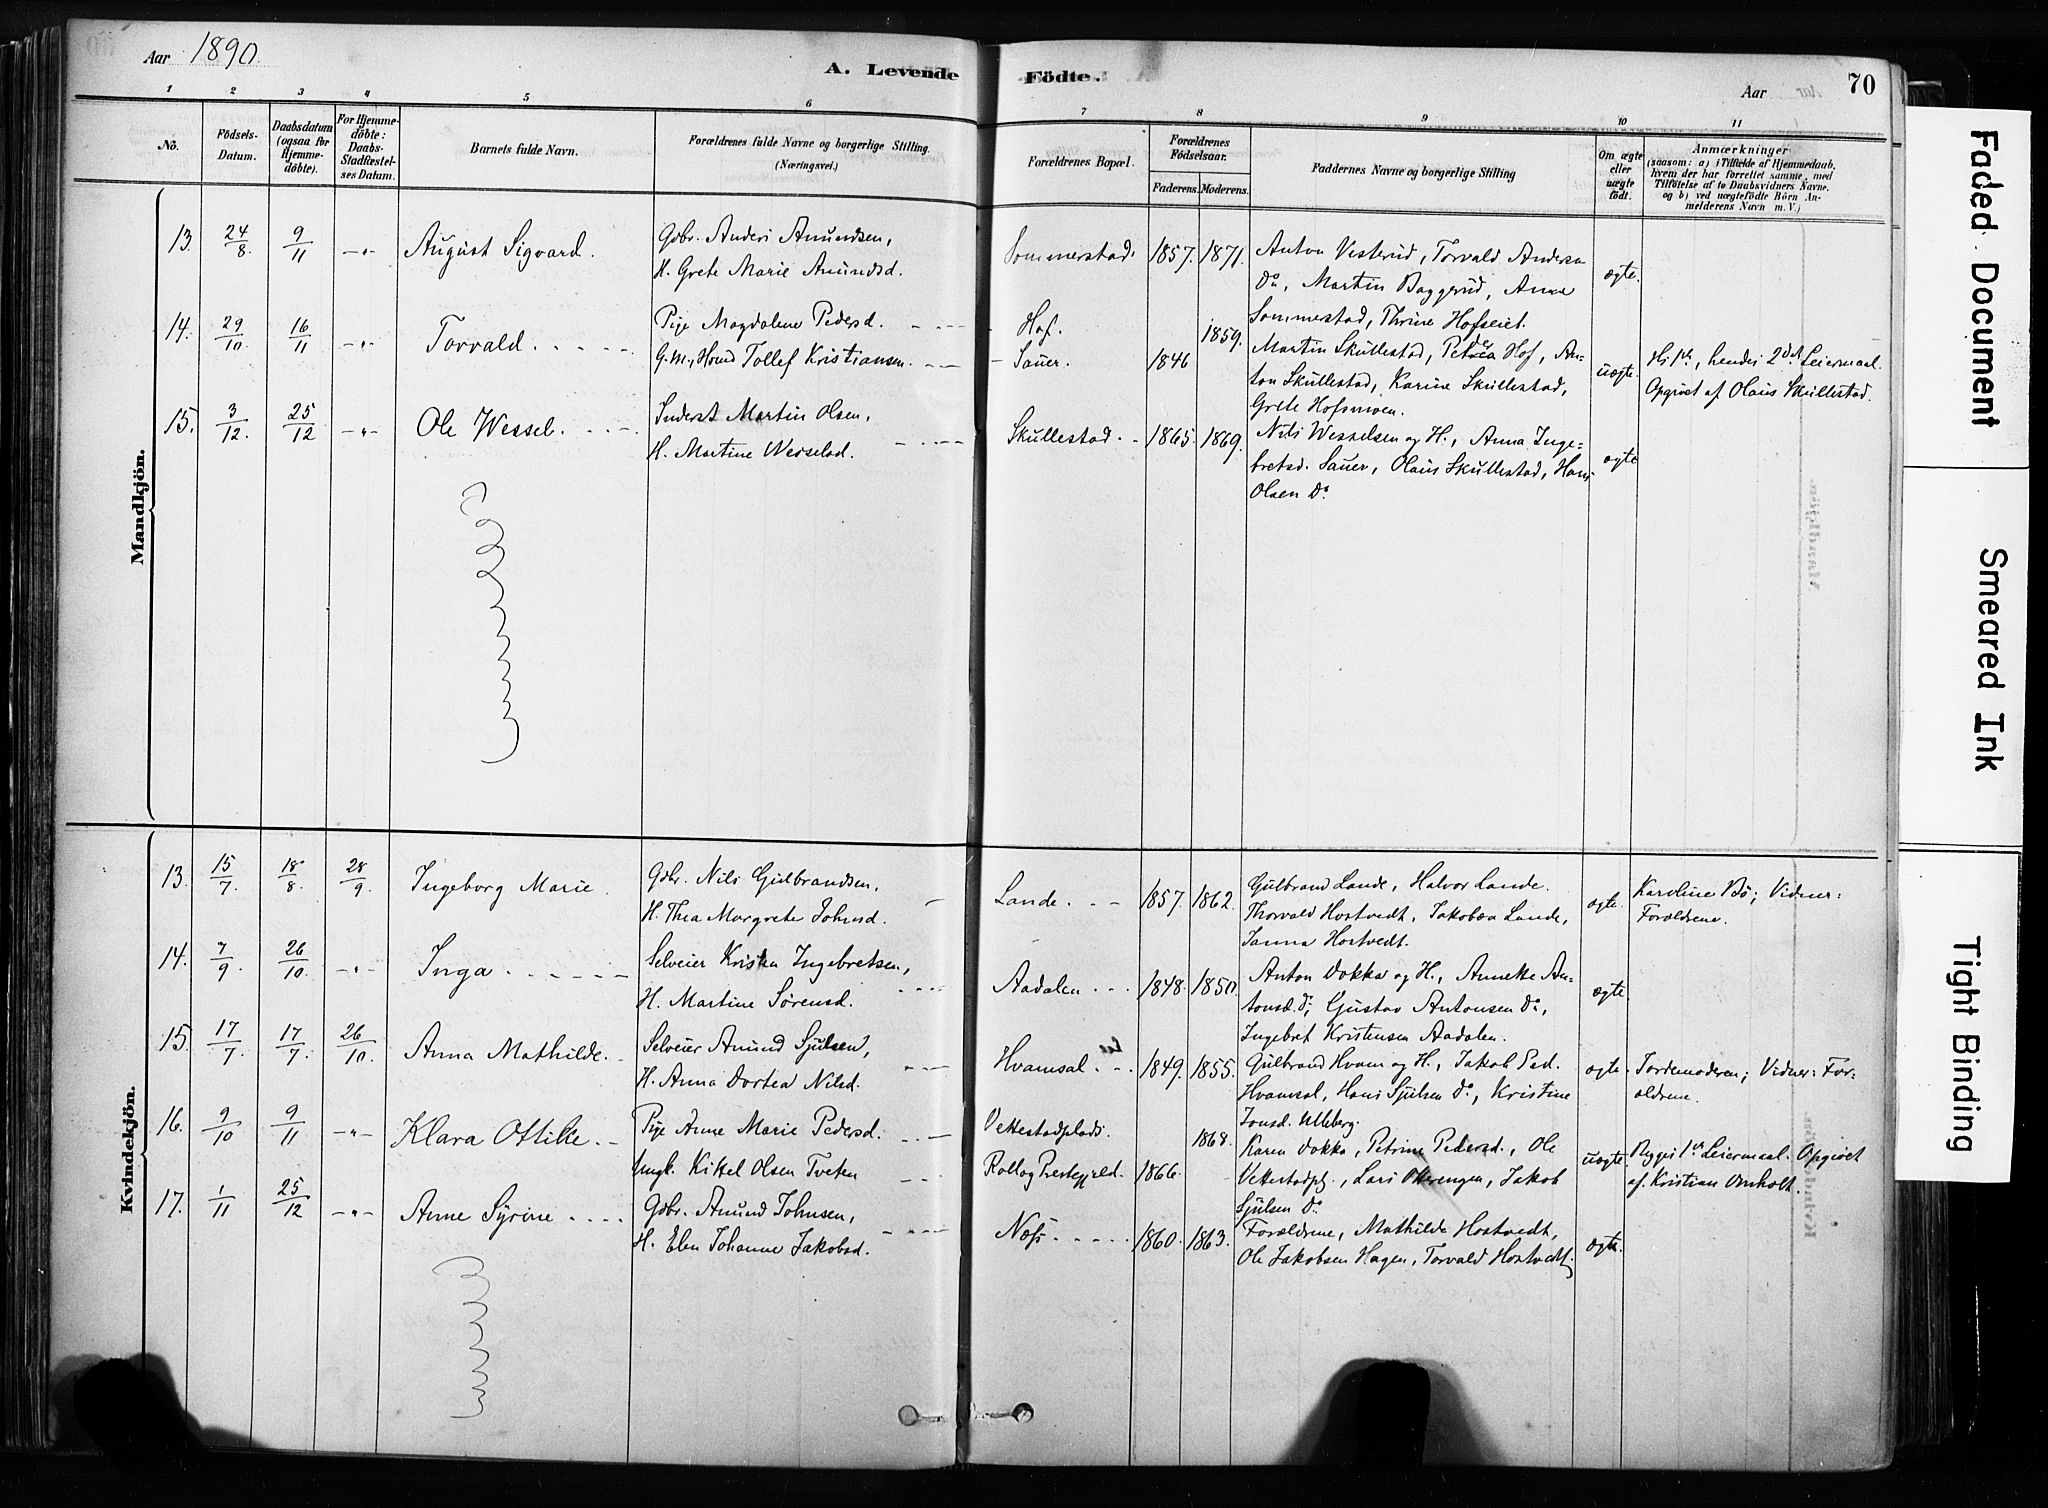 Aar 1890.
A. Levende Födte.
Aar
70
1 2 3 4 5 6 7 8 9 10 11
No.
Födsels-Datum.
Daabsdatum (ogsaa for Hjemme-döbte).
For Hjemme-döbte: Daabs-Stadfæstel-ses Datum.
Barnets fulde Navn.
Forældrenes fulde Navne og borgerlige Stilling. (Næringsvei.)
Forældrenes Bopæl.
Forældrenes Födselsaar.
Faderens. Moderens.
Faddernes Navne og borgerlige Stilling
Om ægte eller uægte født.
Anmærkninger
(saasom: a) i Tilfælde af Hjemmedaab,
hvem der har forrettet samme, med
Tilföielse af to Daabsvidners Navne.
og b) ved uægtefödte Börn An-
melderens Navn m. V.)
Mandkjön.
13. 24/8. 9/11 -"- August Sigvard. Gdbr. Anders Amundsen,
H. Grete Marie Amundsd. Sommerstad. 1857. 1871. Anton Vesterud, Torvald Andersen
Do, Martin Baggerud, Anne
Sommerstad, Thrine Hofseiet. ægte.
14. 29/10. 16/11 -"- Torvald. Pige Magdalene Pedersd. Hof. 1859.
G.m., Hmd Tollef Kristiansen. Sauer. 1846 Martin Skullestad, Petrea Hof, An-
ton Skullestad, Karine Skullestad,
Grete Hofsmoen. uægte. Hs 1ste, hendes 2det Leiermaal.
Opgivet af Olaus Skullestad.
15. 3/12. 25/12 -"- Ole Wessel. Inderst Martin Olsen,
H. Martine Wesselsd. Skullestad. 1865. 1869. Nils Wesselsen og H., Anna Inge-
bretsd. Sauer, Olaus Skullestad, Hans
Olsen Do. ægte
Kvindekjön.
13. 15/7. 18/8. 28/9. Ingeborg Marie. Gdbr. Nils Gulbrandsen,
H. Thea Margrete Johnsd. Lande. 1857. 1862. Gulbrand Lande, Halvor Lande.
Thorvald Hostvedt, Jakobea Lande,
Janna Hostvedt. ægte. Karoline Bö; Vidner:
Forældrene.
14. 7/9. 26/10. -"- Inga. Selveier Kristen Ingebretsen,
H. Martine Sørensd. Aadalen. 1848. 1850. Anton Dokka og H., Anneke An-
tonsd. Do, Gustav Antonsen Do,
Ingebret Kristensen Aadalen. ægte.
15. 17/7. 17/7. 26/10. Anna Mathilde. Selveier Amund Sjulsen,
H. Anna Dortea Nilsd. Hvamsal. 1849. 1855. Gulbrand Hvam og H., Jakob
Hvamsal, Hans Sjulsen Do, Kristine
Jonsd. Ulleberg. ægte. Jordemoderen; Vidner: For-
ældrene.
16. 9/10 9/11 -"- Klara Ottilie. Pige Anne Marie Pedersd. Vettestadplads. 1868.
Ungk. Kittel Olsen Tveten Rollag Prestegjeld. 1866. Karen Dokka, Petrine Pedersd., Ole
Vettestadpl., Lars Otterengen, Jakob
Sjulsen Do uægte. Begges 1ste Leiermaal. Opgivet
af Kristian Omholt.
17. 1/11 25/12 -"- Anne Syrine. Gdbr. Amund Johnsen,
H. Elen Johanne Jakobsd. Næss. 1860. 1863. Forældrene, Mathilde Hostvedt,
Ole Jakobsen Hagen, Torvald Hostvedt. ægte.
Faded Document
Smeared Ink
Tight Binding